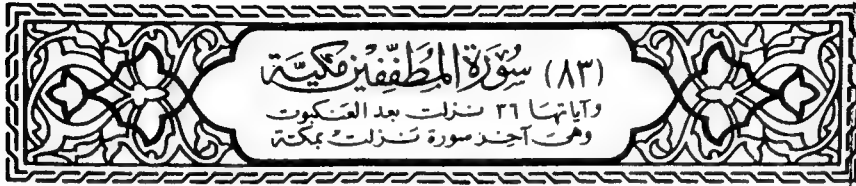 (٨٣) سُورَة المطفّفين مَكيّة
وآياتها ٣٦ نزلت بعد العنكبوت
وهي آخر سورة نزلت بمكة